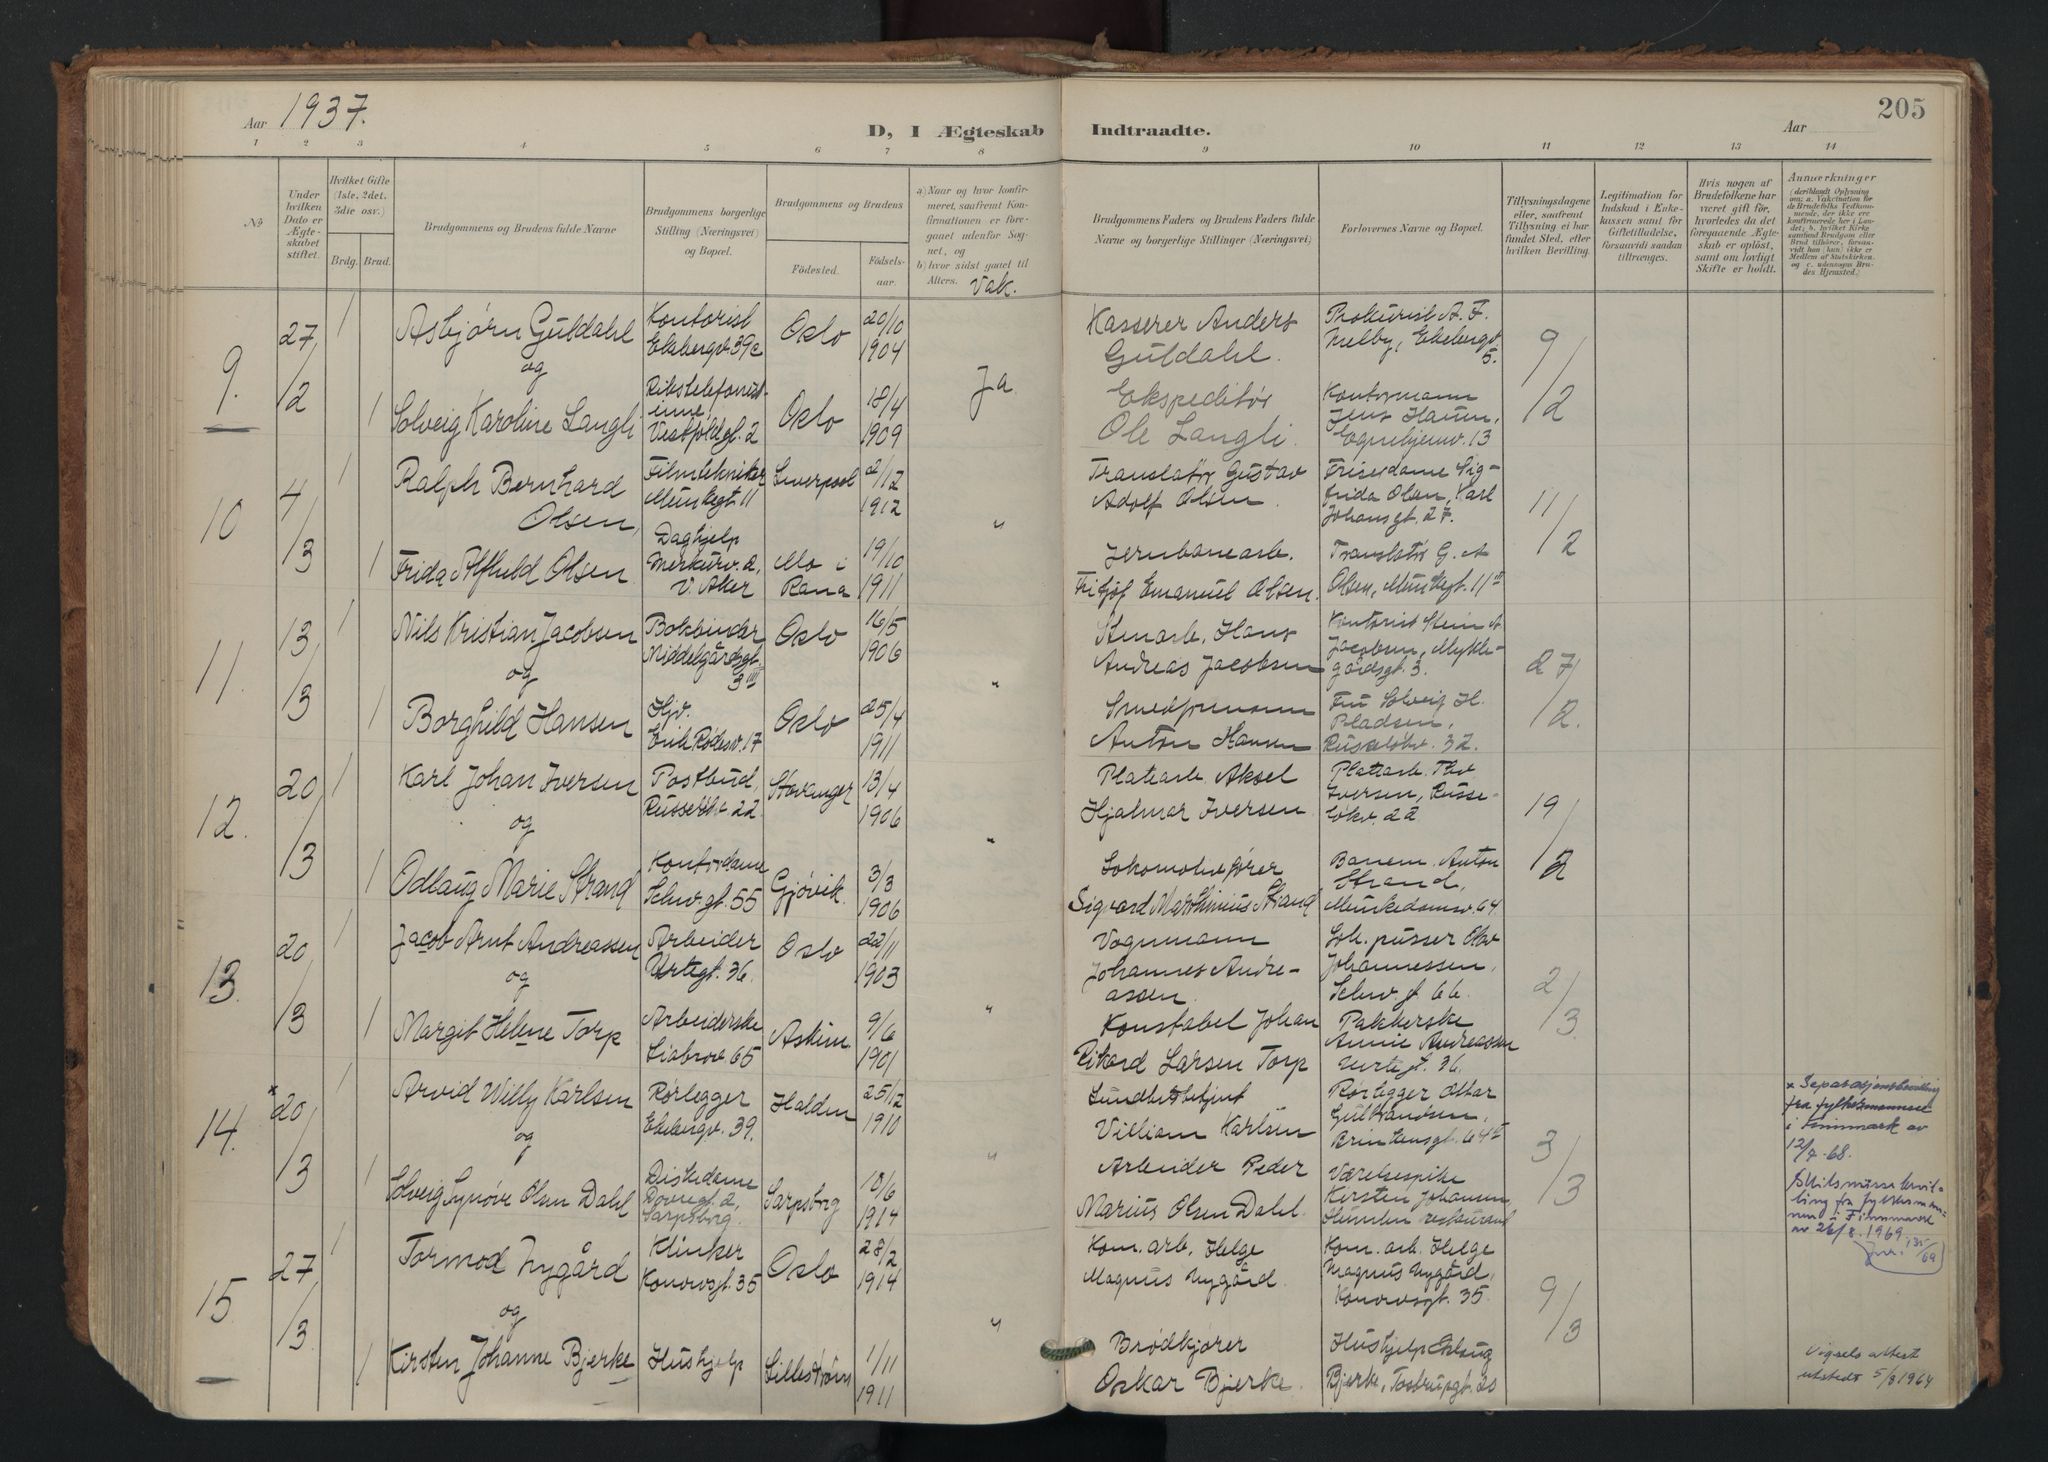 Aar 1937.
D, I Ægteskab Indtraadte.
Aar
205
1 2 3 4 5 6 7 8 9 10 11 12 13 14
No
Under hvilken Dato er Ægteskabet stiftet.
Hvilket Gifte (1ste, 2det, 3die osv.)
Brdg. Brud.
Brudgommens og Brudens fulde Navne
Brudgommens borgerlige Stilling (Næringsvei) og Bopæl.
Brudgommens og Brudens
Fødested. Fødselsaar.
a) Naar og hvor konfirmeret, saafremt Konfirmationen er foregaaet udenfor Sognet, og
b) hvor sidst gaaet til Alters. Vak.
Brudgommens Faders og Brudens Faders fulde Navne og borgerlige Stillinger (Næringsvei)
Forlovernes Navne og Bopæl.
Tillysningsdagene eller, saafremt Tillysning ei har fundet Sted, efter hvilken Bevilling.
Legitimation for Indskud i Enkekassen samt for Giftetilladelse, forsaavidt saadan tiltrænges.
Hvis nogen af Brudefolkene har været gift før, hvorledes da det foregaaende Ægteskab er opløst, samt om lovligt Skifte er holdt.
Anmærkninger
(deriblandt Oplysning om: a. Vakcination for de Brudefolks Vedkommende, der ikke ere konfirmerede her i Landet; b. hvilket Kirkesamfund Brudgom eller Brud tilhører, forsaavidt han (hun) ikke er Medlem af Statskirken, og c. udensogns Brudes Hjemsted.)
9. 27/2 1 Asbjørn Guldahl Kontorist Ekebergv. 39c Oslo 20/10 1904 Kasserer Anders Guldahl. Prokurist A. F. Melby, Ekebergv. 5. 9/2
og
1 Solveig Karoline Langli Rikstelefonistinne, Vestfoldgt. 2 Oslo 18/4 1909 Ja Ekspeditør Ole Langli. Kontormann Jens Hauen, Egnehjemv. 13
10 4/3 1 Ralph Bernhard Olsen, Filmtekniker Munkegt 11 Liverpool 2/12 1912 " Translatør Gustav Adolf Olsen Friserdame Sigfrida Olsen, Karl Johansgt. 27. 11/2
1 Frida Alfhild Olsen Daghjelp Merkurv. 2, V. Aker Mo i Rana 19/10 1911 Jernbanearb. Fritjof Emanuel Olsen. Translatør G. A Olsen, Munkegt. 11 III
11. 13/3 1 Nils Kristian Jacobsen Bokbinder Middelgårdsgt. 3 III Oslo 16/5 1906 Stenarb. Hans Andreas Jacobsen Kontorist Stein A. Jacobsen, Myklegårdsgt. 3. 27/2.
og "
1 Borghild Hansen Hjv. Erik Rødesv. 17 Oslo 25/4 1911 Smedformann Anton Hansen Fru Solveig H. Pladsen, Russeløkv. 32.
12. 20/3 1 Karl Johan Iversen Postbud, Russeløkv 22 Stavanger 13/4 1906 Platearb. Aksel Hjalmar Iversen Platearb. Thv. Iversen, Russeløkv. 22 19/2
og "
1 Odlaug Marie Strand Kontordame Schwgt. 55 Gjøvik 3/3 1906 Lokomotivfører Sigvard Marthinius Strand Banem. Anton Strand, Munkedamsv. 64
13. 20/3 1 Jacob Arnt Andreassen Arbeider Urtegt. 36. Oslo 22/11 1903 Vognmann Johannes Andreassen. Lok. pusser Olav Johannessen, Schw. gt 66. 2/3.
og "
1 Margit Helene Torp Arbeiderske Liabrov 65 Askim 9/6 1901 Konstabel Johan Rikard Larsen Torp Pakkerske Annie Andreassen Urtegt. 36.
14. × 20/3 1 Arvid Willy Karlsen Rørlegger Ekebergv. 39. Halden 25/12 1910 Sundhetsbetjent Villiam Karlsen Rørlegger Ottar Gulbrandsen, Brinkensgt. 64 II 3/3
og "
1 Solveig Synøve Olsen Dahl Diskedame Dovregt 2, Sarpsborg. Sarpsborg 10/6 1914 Arbeider Peder Marius Olsen Dahl. Værelsespike Kirsten Johansen Humlen restaurant
× Separasjonsbevilling fra fylkesmannen i Finnmark av 12/7-68.
Skilsmissebevilling fra fylkesmannen i Finnmark av 26/8.1969. jnr. 135/69
15. 27/3 1 Tormod Nygård Klinker Konowsgt. 35 Oslo 28/2 1914 Kom. arb. Helge Magnus Nygård. Kom. arb. Helge Magnus Nygård, Konowsgt. 35. 9/3
og "
1 Kirsten Johanne Bjerke Hushjelp Lillestrøm 1/11 1911 Brødkjører Oskar Bjerke. Hushjelp Bjerke, Tostrupgt. 20
Vigselsattest utstedt 5/8 1964